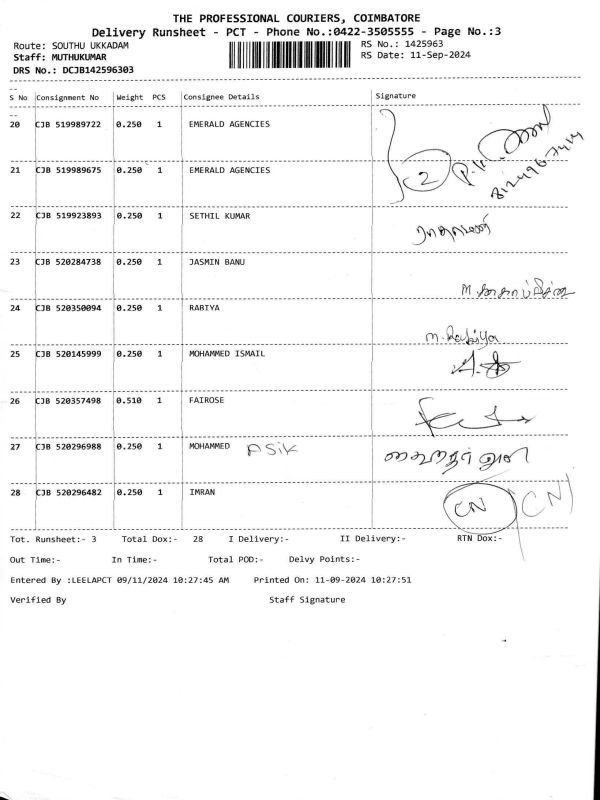 THE PROFESSIONAL COURIERS, COIMBATORE
Delivery Runsheet - PCT - Phone No.:0422-3505555 - Page No.:3
Route: SOUTHU UKKADAM RS No.: 1425963
Staff: MUTHUKUMAR RS Date: 11-Sep-2024
DRS No.: DCJB142596303
S No Consignment No Weight PCS Consignee Details Signature
20 CJB 519989722 0.250 1 EMERALD AGENCIES
21 CJB 519989675 0.250 1 EMERALD AGENCIES 2 P.K.
22 CJB 519923893 0.250 1 SETHIL KUMAR
23 CJB 520284738 0.250 1 JASMIN BANU
24 CJB 520350094 0.250 1 RABIYA M. Rabiya
25 CJB 520145999 0.250 1 MOHAMMED ISMAIL
26 CJB 520357498 0.510 1 FAIROSE
27 CJB 520296988 0.250 1 MOHAMMED ASIK
28 CJB 520296482 0.250 1 IMRAN CN CN
Tot. Runsheet:- 3 Total Dox:- 28 I Delivery:- II Delivery:- RTN Dox:-
Out Time:- In Time:- Total POD:- Delvy Points:-
Entered By :LEELAPCT 09/11/2024 10:27:45 AM Printed On: 11-09-2024 10:27:51
Verified By Staff Signature